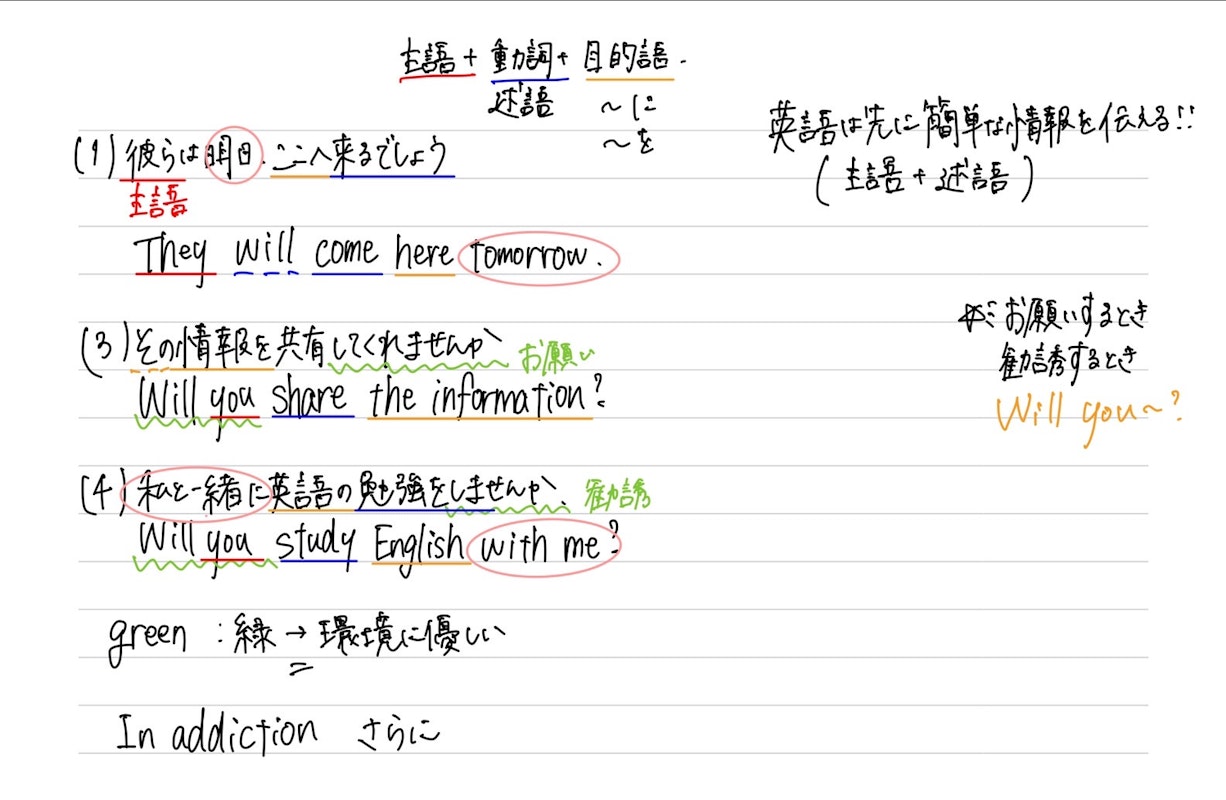 主語 + 動詞 + 目的語.
述語 〜に
〜を
英語は先に簡単な情報を伝える!!
(主語 + 述語)
(1) 彼らは明日、ここへ来るでしょう
主語
They will come here tomorrow.
(3) その情報を共有してくれませんか お願い
Will you share the information?
※ お願いするとき
勧誘するとき
Will you〜?
(4) 私と一緒に英語の勉強をしませんか、 勧誘
Will you study English with me?
green : 緑 → 環境に優しい
In addiction さらに